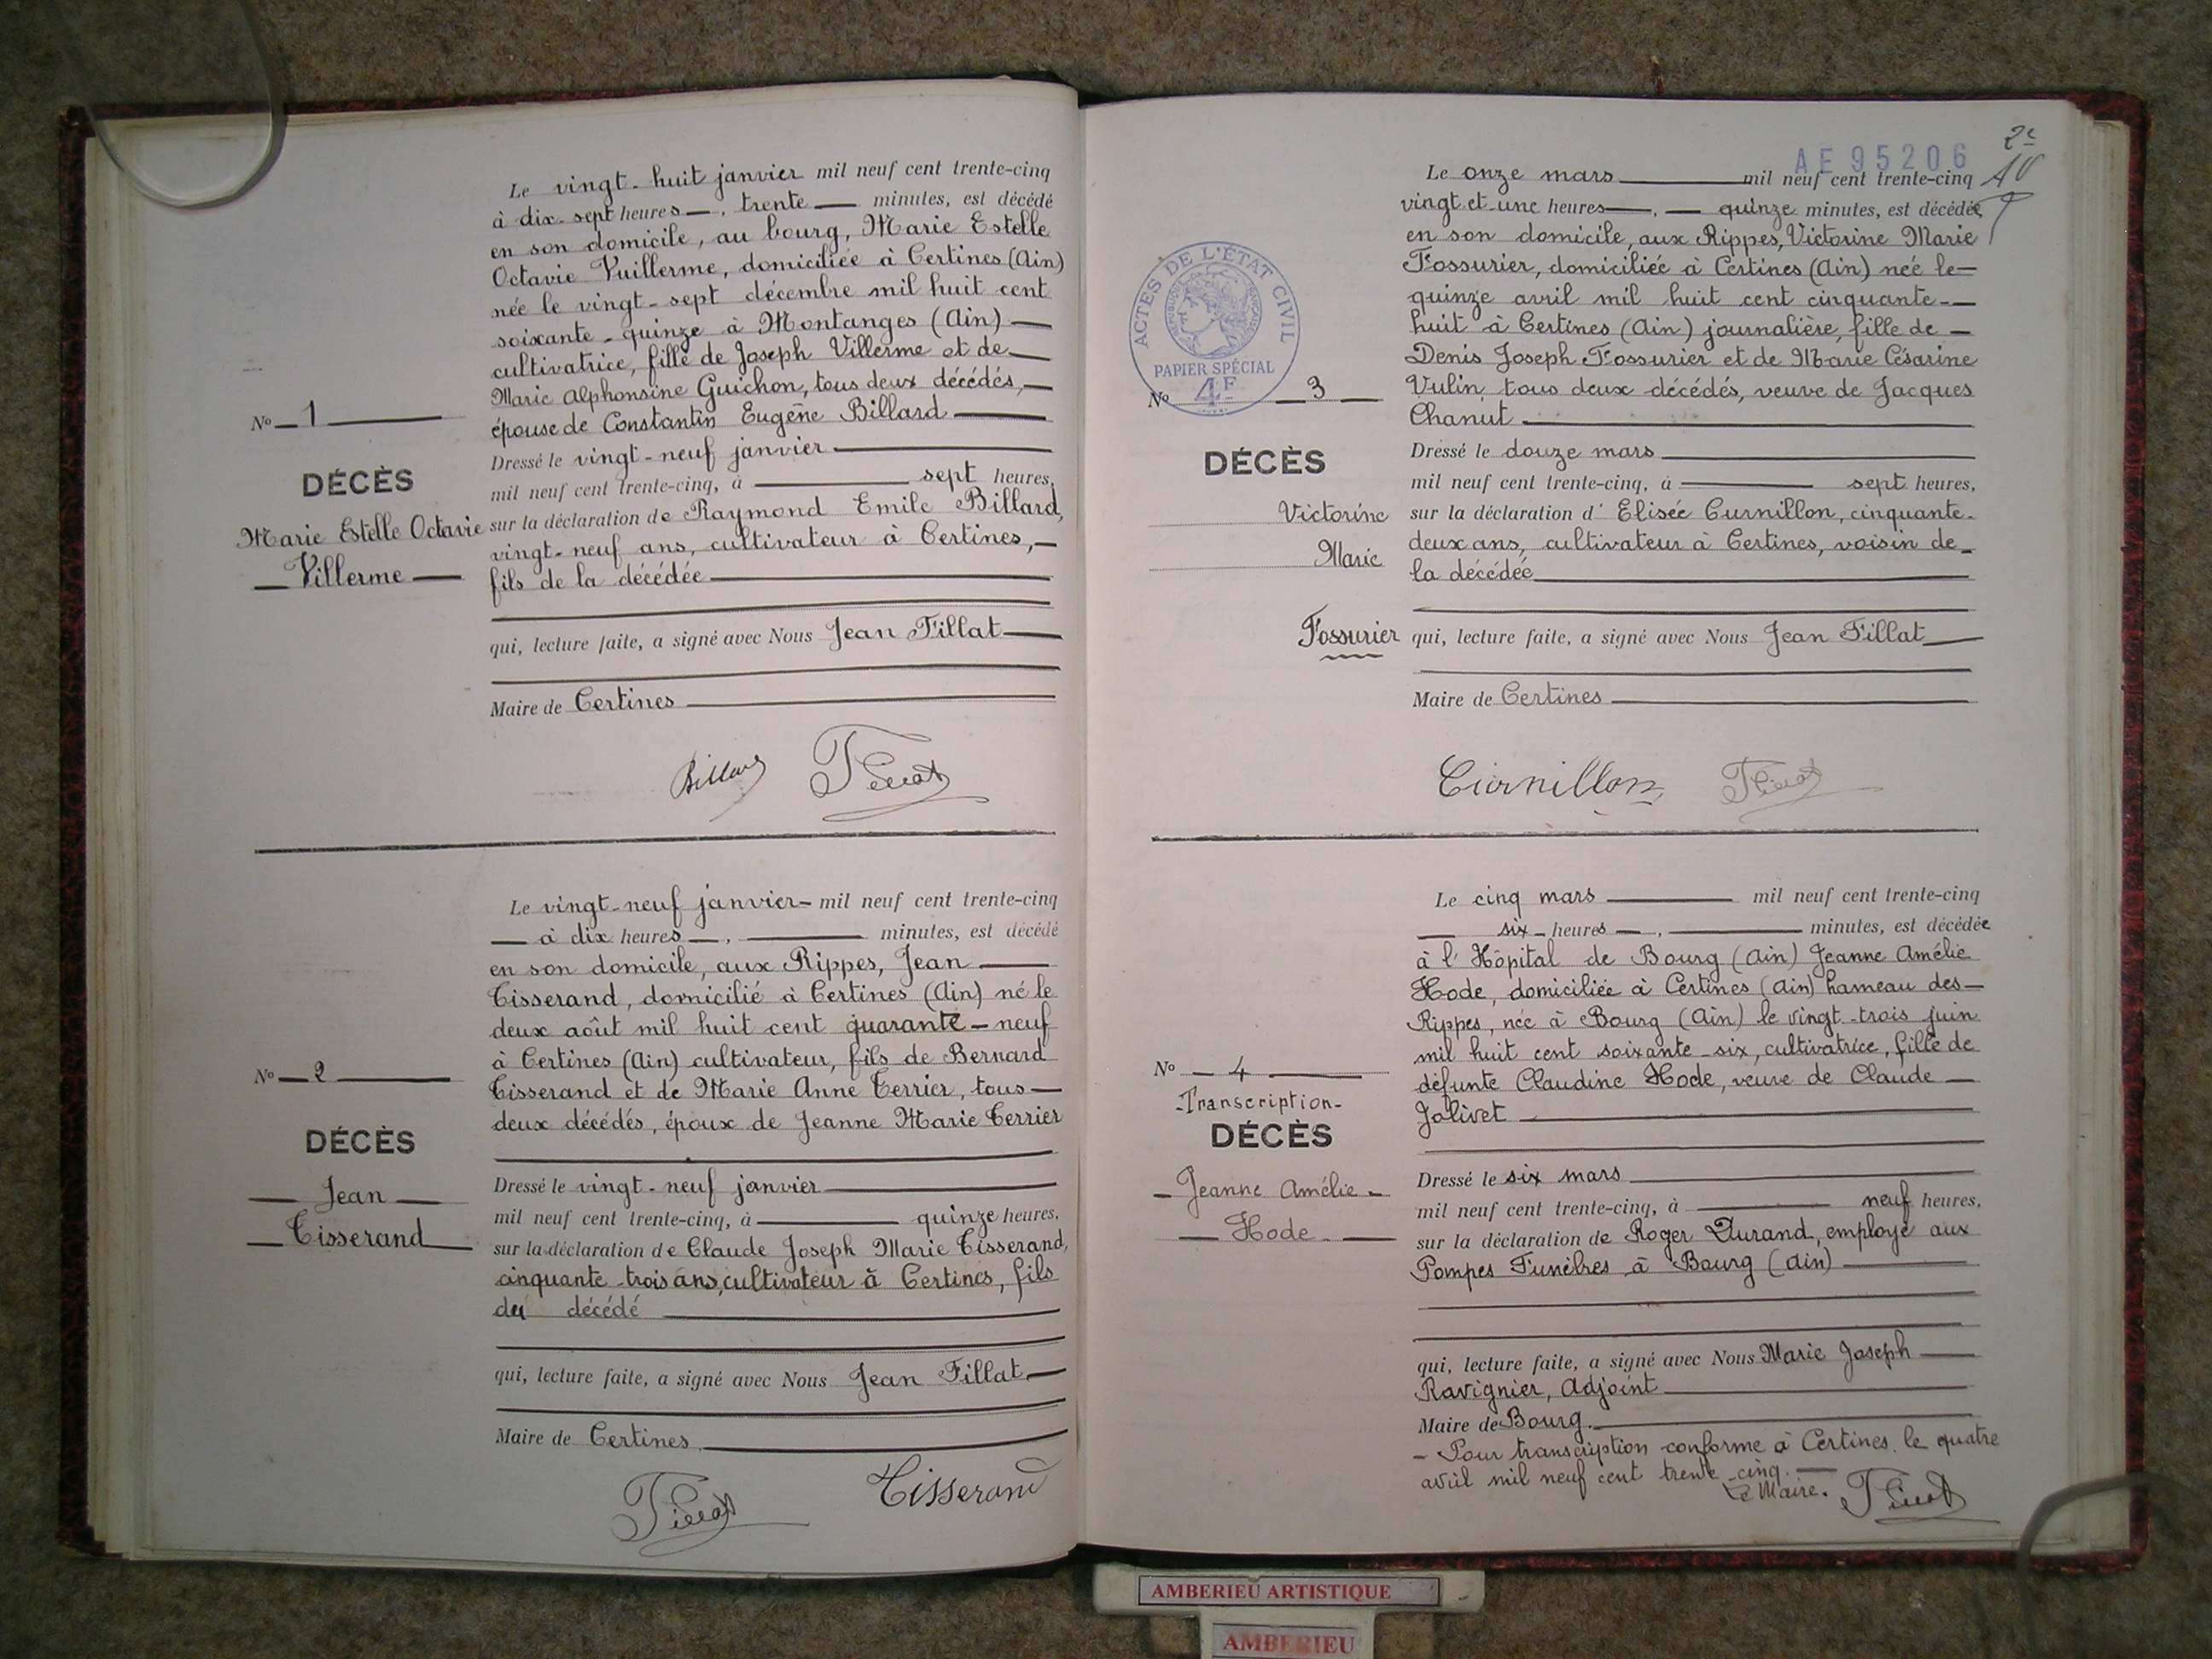 Le vingt-huit janvier mil neuf cent trente-cinq
à dix-sept heures, trente minutes, est décédé
en son domicile, au bourg, Marie Estelle
Octavie Vuillerme, domiciliée à Certines (Ain)
née le vingt-sept décembre mil huit cent
soixante-quinze à Montanges (Ain)
cultivatrice, fille de Joseph Villerme et de
Marie Alphonsine Guichon, tous deux décédés,
épouse de Constantin Eugène Billard
No 1
Dressé le vingt-neuf janvier
DÉCÈS
mil neuf cent trente-cinq, à sept heures,
Marie Estelle Octavie
Villerme
sur la déclaration de Raymond Emile Billard,
vingt-neuf ans, cultivateur à Certines,
fils de la décédée
qui, lecture faite, a signé avec Nous Jean Fillat
Maire de Certines
Billard Fillat
Le vingt-neuf janvier mil neuf cent trente-cinq
à dix heures, minutes, est décédé
en son domicile, aux Rippes, Jean
Tisserand, domicilié à Certines (Ain) né le
deux août mil huit cent quarante-neuf
à Certines (Ain) cultivateur, fils de Bernard
Tisserand et de Marie Anne Terrier, tous
deux décédés, époux de Jeanne Marie Terrier
No 2
DÉCÈS
Jean
Tisserand
Dressé le vingt-neuf janvier
mil neuf cent trente-cinq, à quinze heures,
sur la déclaration de Claude Joseph Marie Tisserand,
cinquante-trois ans, cultivateur à Certines, fils
du décédé
qui, lecture faite, a signé avec Nous Jean Fillat
Maire de Certines
Fillat Tisserand
2e
AE 95206
Le onze mars mil neuf cent trente-cinq
vingt et une heures, quinze minutes, est décédée
en son domicile, aux Rippes, Victorine Marie
Fossurier, domiciliée à Certines (Ain) née le
quinze avril mil huit cent cinquante-
huit à Certines (Ain) journalière, fille de
Denis Joseph Fossurier et de Marie Césarine
Vulin, tous deux décédés, veuve de Jacques
Chanut
ACTES DE L'ÉTAT CIVIL
RÉPUBLIQUE FRANÇAISE
PAPIER SPÉCIAL
4F
No 3
DÉCÈS
Victorine
Marie
Fossurier
Dressé le douze mars
mil neuf cent trente-cinq, à sept heures,
sur la déclaration d' Elisée Curnillon, cinquante-
deux ans, cultivateur à Certines, voisin de
la décédée
qui, lecture faite, a signé avec Nous Jean Fillat
Maire de Certines
Curnillon Fillat
Le cinq mars mil neuf cent trente-cinq
six heures, minutes, est décédée
à l'Hôpital de Bourg (Ain) Jeanne Amélie
Hode, domiciliée à Certines (Ain) hameau des
Rippes, née à Bourg (Ain) le vingt-trois juin
mil huit cent soixante-six, cultivatrice, fille de
défunte Claudine Hode, veuve de Claude
Jolivet
No 4
-Transcription-
DÉCÈS
Jeanne Amélie
Hode
Dressé le six mars
mil neuf cent trente-cinq, à neuf heures,
sur la déclaration de Roger Durand, employé aux
Pompes Funèbres à Bourg (Ain)
qui, lecture faite, a signé avec Nous Marie Joseph
Ravignier, Adjoint
Maire de Bourg.
- Pour transcription conforme à Certines, le quatre
avril mil neuf cent trente-cinq.
Le Maire. Fillat
AMBERIEU ARTISTIQUE
AMBERIEU